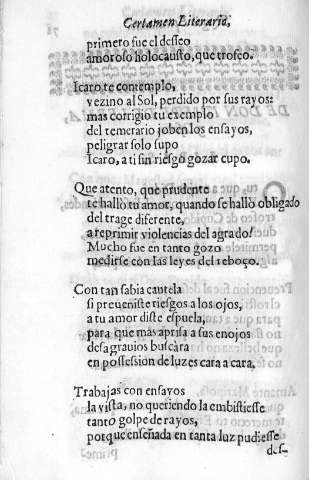 Certamen Literario,
primero fue el desseo
amoroso holocausto, que trofeo.
Icaro te contemplo,
vezino al Sol, perdido por sus rayos:
mas corrigio tu exemplo
del temerario joben los ensayos,
peligrar solo supo
Icaro, a ti sin riesgo gozar cupo.
Que atento, que prudente
te hallò tu amor, quando se hallò obligado
del trage diferente,
a reprimir violencias del agrado!
Mucho fue en tanto gozo
medirse con las leyes del reboço.
Con tan sabia cautela
si preueniste riesgos a los ojos,
a tu amor diste espuela,
para que mas aprisa a sus enojos
desagrauios buscàra
en possession de luzes cara a cara.
Trabajas con ensayos
la vista, no queriendo la embistiesse
tanto golpe de rayos,
porque enseñada en tanta luz pudiesse
des-